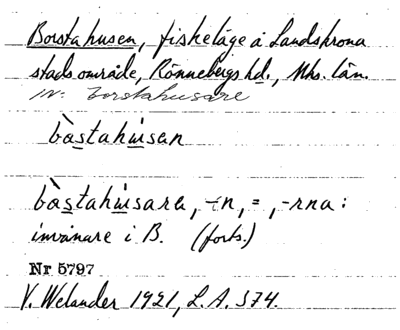 Borstahusen, fiskeläge å Landskrona
stads område, Rönnebergs hd., Mhs. län.
m. borstahusare
bàstahúsen
bàstahúsara, -n, =, -rna:
invånare i B. (forts.)
Nr 5797
V. Welander 1921, L.A. 374.